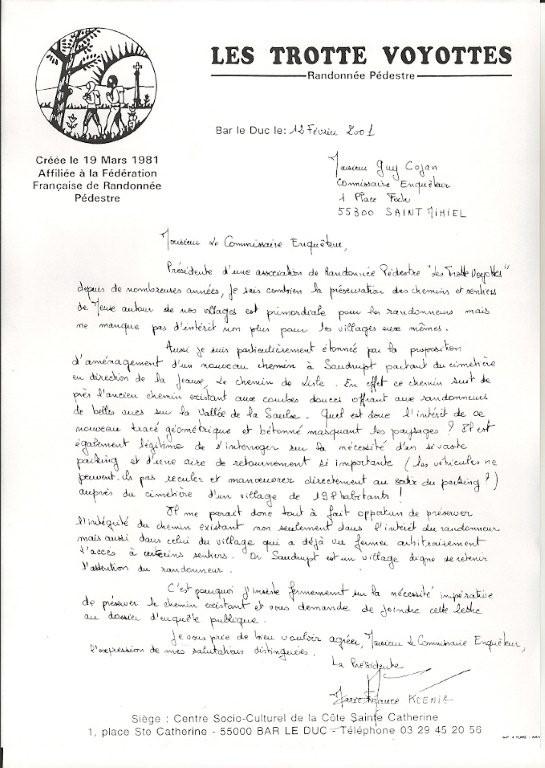 LES TROTTE VOYOTTES
Randonnée Pédestre
Bar le Duc le: 12 Février 2001
Créée le 19 Mars 1981
Affiliée à la Fédération
Française de Randonnée
Pédestre
Monsieur Guy Cojan
Commissaire Enquêteur
1 Place Foch
55300 SAINT MIHIEL
Monsieur Le Commissaire Enquêteur,
Présidente d'une association de Randonnée Pédestre "Les Trotte Voyottes"
depuis de nombreuses années, je sais combien la préservation des chemins et sentiers
de Meuse autour de nos villages est primordiale pour les randonneurs mais
ne manque pas d'intérêt non plus pour les villages eux mêmes.
Aussi je suis particulièrement étonnée par la proposition
d'aménagement d'un nouveau chemin à Saudrupt partant du cimetière
en direction de la Jeaux, Le chemin de Lisle. En effet ce chemin suit de
près l'ancien chemin existant aux courbes douces offrant aux randonneurs
de belles vues sur la Vallée de la Saulx. Quel est donc l'intérêt de ce
nouveau tracé géométrique et bétonné marquant les paysages ? Il est
également légitime de s'interroger sur la nécessité d'un si vaste
parking et d'une aire de retournement si importante (les véhicules ne
peuvent ils pas reculer et manoeuvrer directement au sortir du parking ?)
auprès du cimetière d'un village de 198 habitants !
Il me parait donc tout à fait opportun de préserver
l'intégrité du chemin existant non seulement dans l'intérêt du randonneur
mais aussi dans celui du village qui a déjà vu fermer arbitrairement
l'accès à certains sentiers. Or Saudrupt est un village digne de retenir
l'attention du randonneur.
C'est pourquoi j'insiste fermement sur la nécessité impérative
de préserver le chemin existant et vous demande de joindre cette lettre
au dossier d'enquête publique.
Je vous prie de bien vouloir agréer, Monsieur Le Commissaire Enquêteur,
l'expression de mes salutations distinguées.
La Présidente
Marie France KOENIG
Siège : Centre Socio-Culturel de la Côte Sainte Catherine
1, place Ste Catherine - 55000 BAR LE DUC - Téléphone 03 29 45 20 56